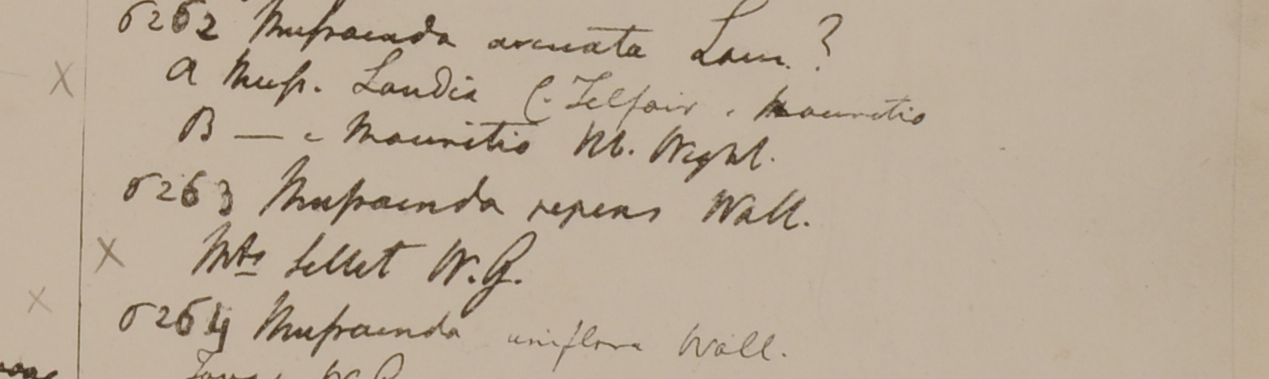 6262 Mussaenda arcuata Lam. ?
A Muss. Landia C. Telfair e Mauritio
B — e Mauritio Hb. Wight.
6263 Mussaenda repens Wall.
Mts Sillet W.G.
6264 Mussaenda uniflora Wall.
W.G.